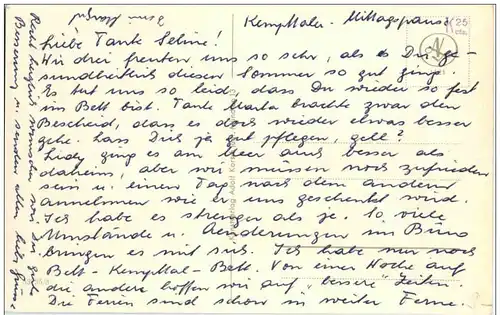 Kempttaler - Mittagspause
Liebe Tante Selma!
Wir drei freuten uns so sehr, als es Dir ge-
sundheitlich diesen Sommer so gut ging.
Es tut uns so leid, dass Du wieder so fest
im Bett bist. Tante Marta brachte zwar den
Bescheid, dass es doch wieder etwas besser
gehe. Lass Dich ja gut pflegen, gell?
ging es am Meer auch besser als
daheim, aber wir müssen noch zufrieden
sein u. einen Tag nach dem andern
annehmen wie er uns geschenkt wird.
Ich habe es strenger als je. So viele
Umstände u. Aenderungen im Büro
bringen es mit sich. Ich habe nur noch
Bett - Kempttal - Bett. Von einer Woche auf
die andere hoffen wir auf "bessere" Zeiten.
Die Ferien sind schon in weiter Ferne.
Recht herzlich wünschen wir Dir gute
Besserung u. senden allen liebe Grüsse
25